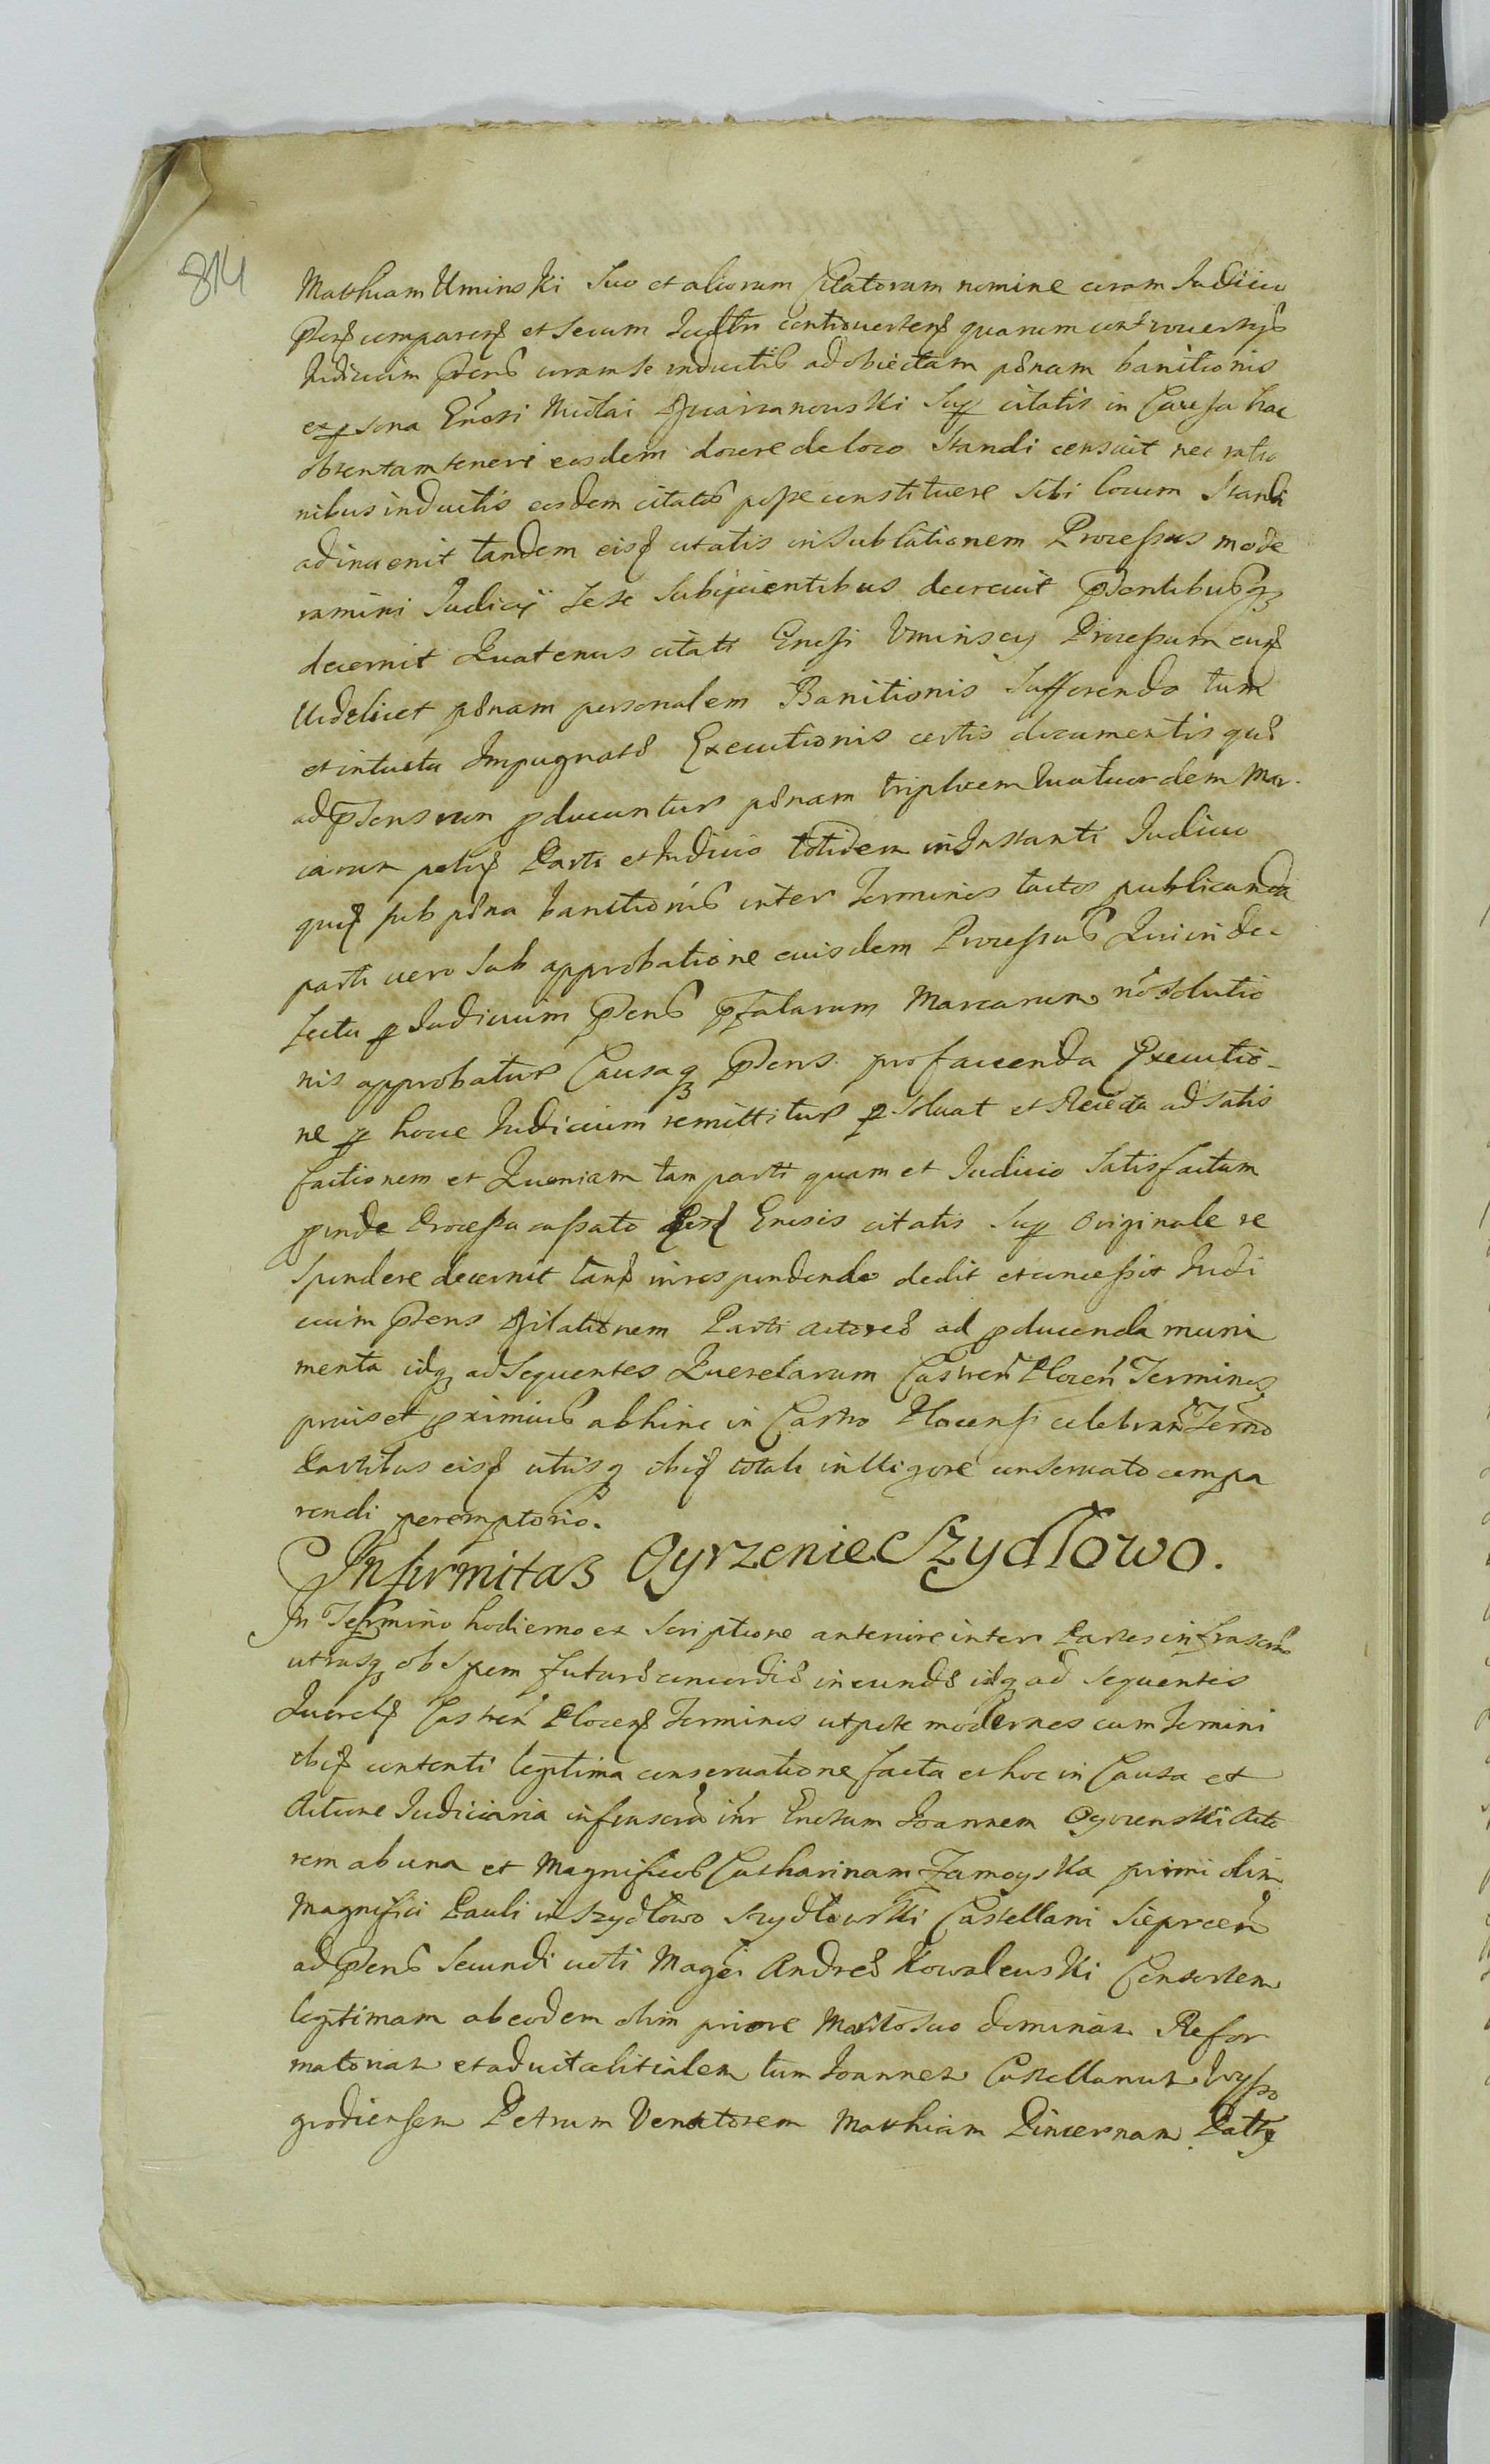 814
Mathiam Uminski Suo et aliorum Citatorum nomine coram Judicio
comparen et secum controverten quorum controversys
Judicium pntis coram se inductis ad obiectam pænam banitionis
ex psona Gnosi Nicolai sup citatis in Causa hac
obtentam teneri eosdem docere de loco Standi censuit nec ratio
nibus inductis eosdem citatos posse constituere Sibi locum Standi
adinvenit tandem eisq citatis in Sublationem Processus mode
ramini Judicij Sese Subijcientibus decrevit pntibusq
decernit Quatenus citati Gnosi Uminscy Processum eunq
Videlicet pænam personalem Banitionis Sufferendo tum
et intuitu Impugnatæ Executionis certis documentis quæ
ad pntns non pducuntur pænam triplicem quatuordecim Mar
carum polq Parti et Judicio totidem in Instanti Judicio
quiq sub pæna banitionis inter Terminos tactos publicanda
parti vero Sub approbatione eiusdem Processus Qui in de
fectu p Judicium pns pfatarum Marcarum nō Solutio
nis approbatur Causaq pns pro facienda Executio-
ne p hocce Judicium remittitur psolvat et Reiecta ad Satis
factionem et Quoniam tam parti quam et Judicio Satisfactum
pinde Processu cassato Gnosis citatis Sup Originale re
Spondere decernit tanq in respondendo dedit et concessit Judi
cium pns dilationem Parti actoreæ ad pducenda muni
menta idq ad Sequentes Querelarum Castren Plocen Terminos
prius et pximius abhinc in Castro Plocensi celebran Termō
Partibus eisq utrisq obiq totali in Vigore conservato compa
rendi peremptorio.
Infirmitas Ogrzenie Szydłowo.
In Termino hodierno ex Scriptione anteriore inter Partes infrascr
utrasq ob Spem futuræ concordiæ ineundæ idq ad Sequentes
Querelq Castren Plocenq Terminos utpote modernos cum Temini
obiq contenti legitima conservatione facta et hoc in Causa et
Actione Judiciaria infrascra inr Gnosum Joannem Ogrzenski Acto
rem ab una et Magnificos Catharinam Zamoyska primi olim
Magnifici Pauli in Szydłowo Szydłowski Castellani Sieprcen
ad pns Secundi voti Magci Andreæ Kowalewski Consortem
legitimam ab eodem olim priore Marito Suo dominam Refor
matoriam et advitalitialem tum Joannem Castellanum Wysso
grodiensem Petrum Venatorem Mathiam Pincernam